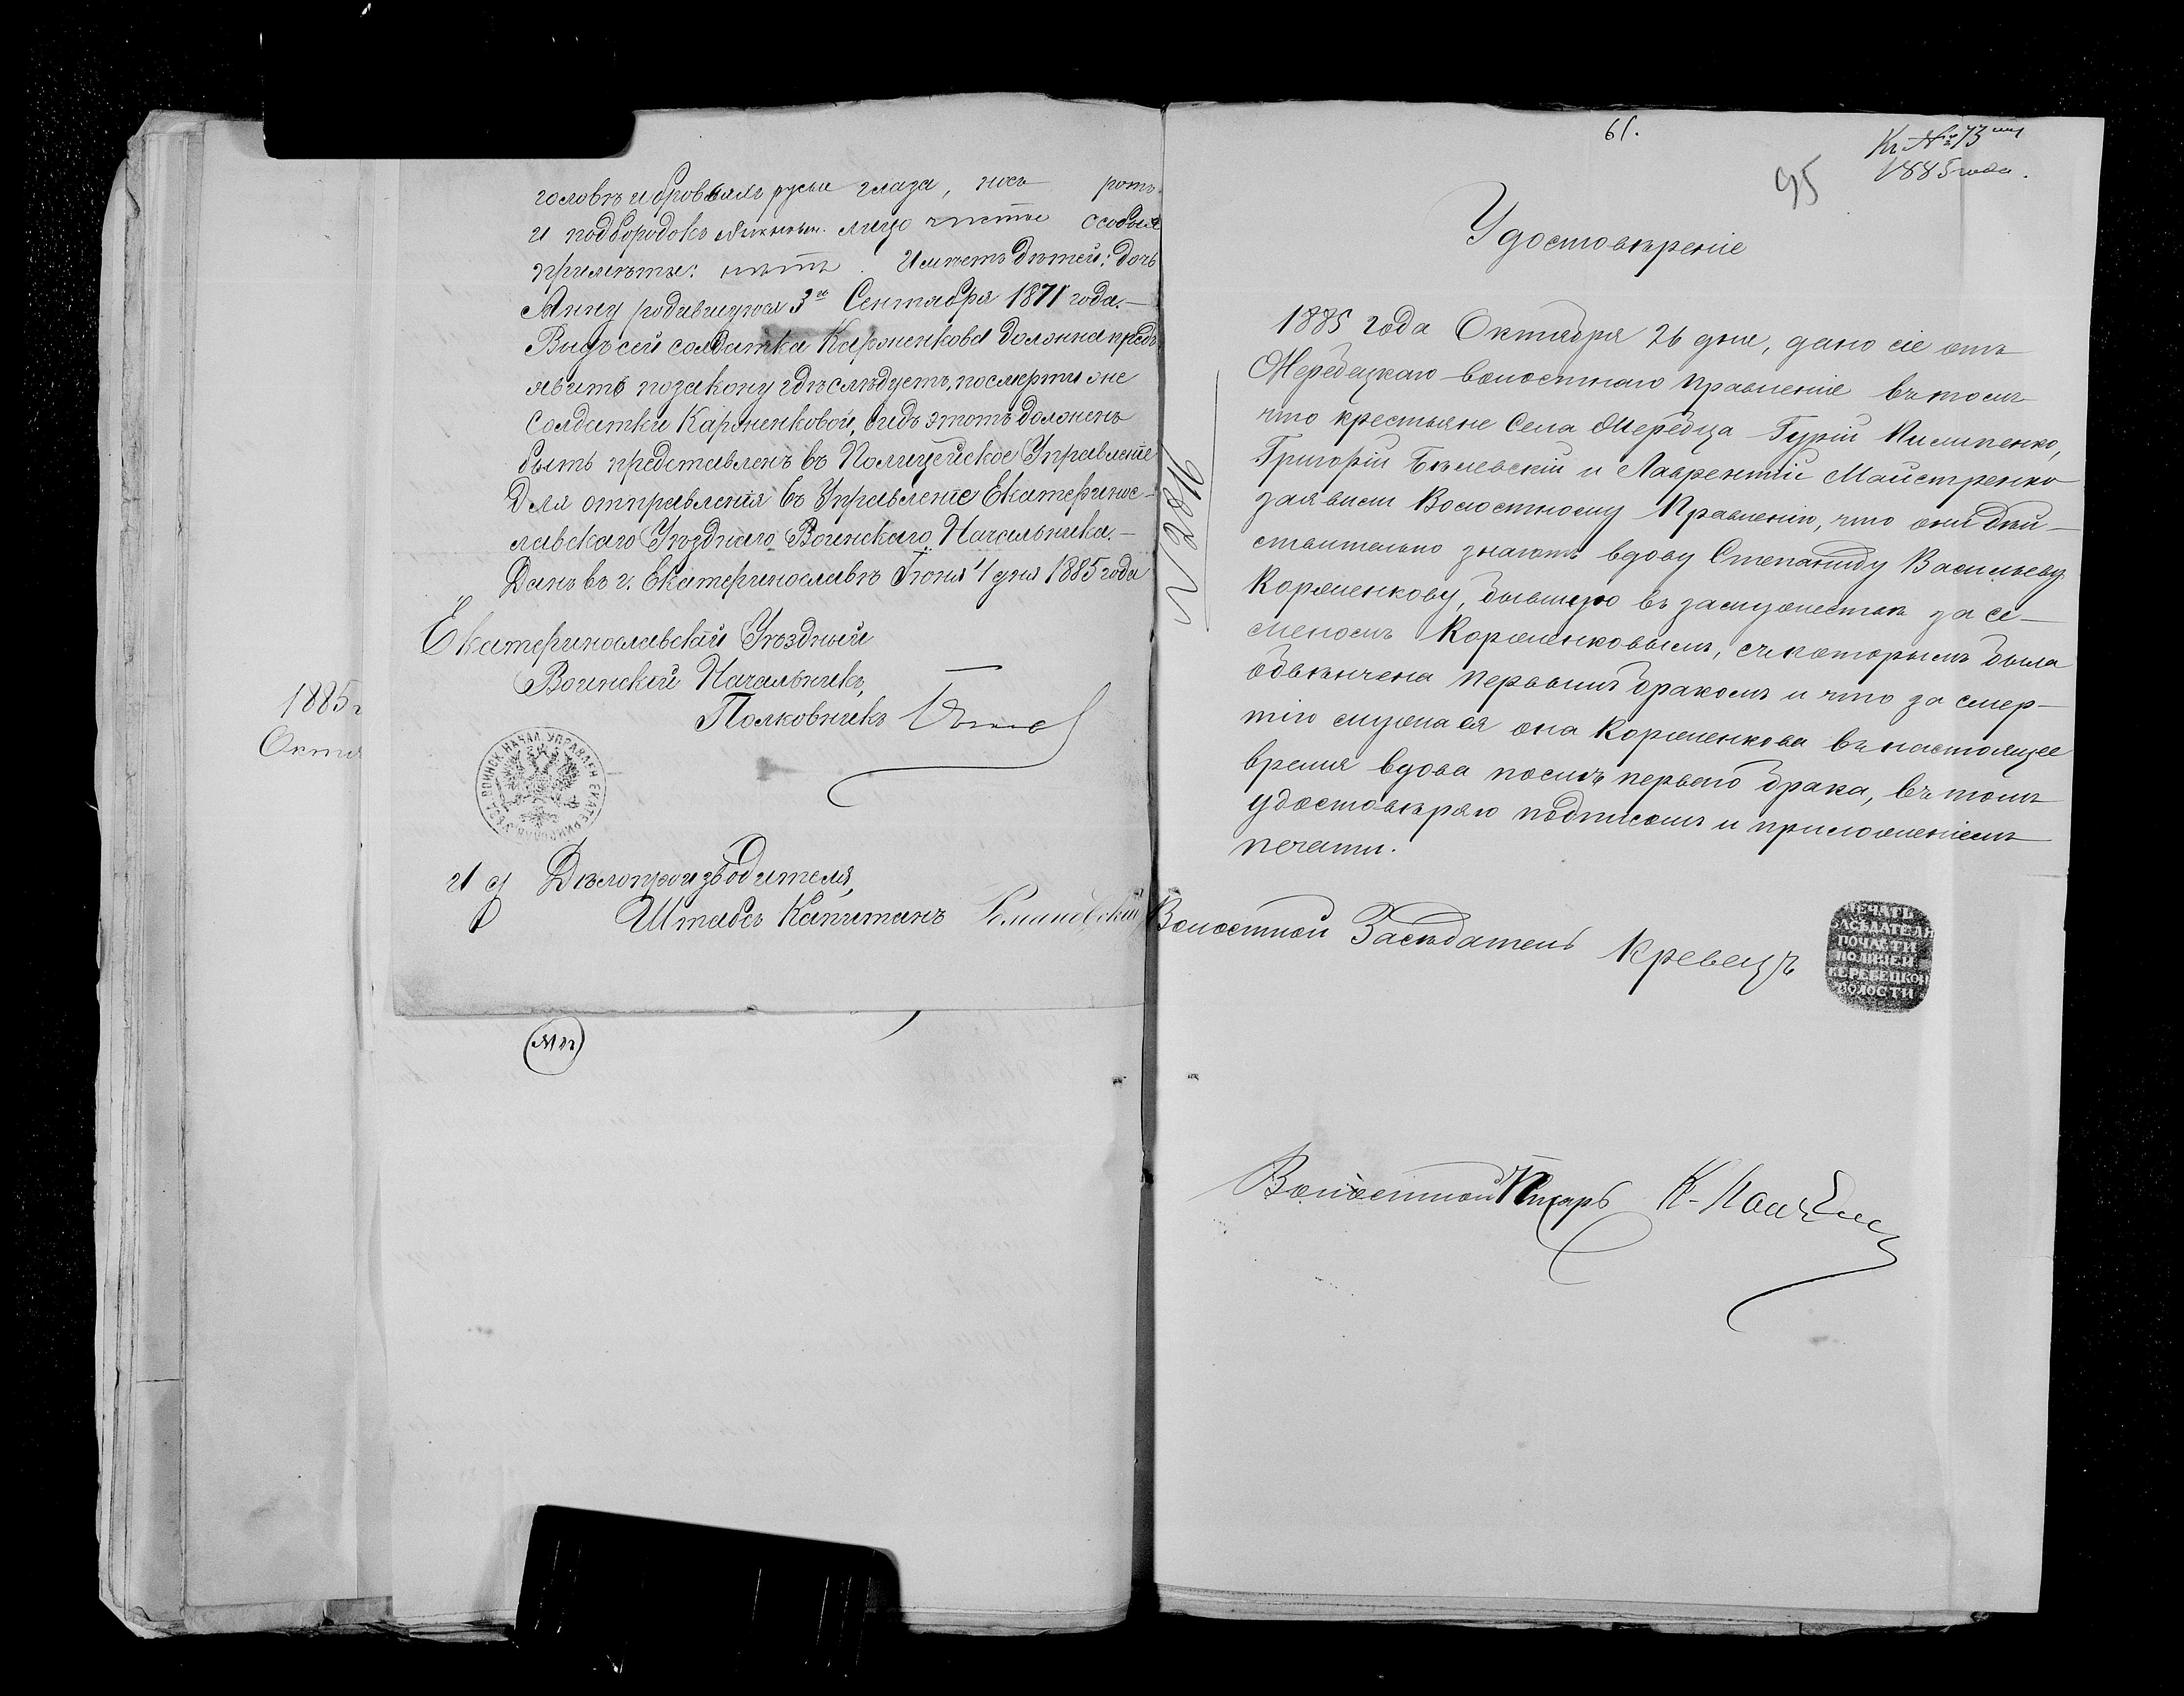 головѣ и бровяхъ русые глаза, носъ ротъ
и подбородокъ лицо чистое особыя
примѣты: нѣтъ. Имѣетъ дѣтей: дочь
Анну родившуюся 3го Сентября 1871 года.—
Видъ сей солдатка Карженкова должна предъ
явить по закону гдѣ слѣдуетъ, по смерти же
солдатки Карженковой, видъ этотъ долженъ
быть представленъ въ Полицейское Управленіе
для отправленія въ Управленіе Екатеринос-
лавскаго Уѣзднаго Воинскаго Начальника.—
Данъ въ г. Екатеринославѣ Іюня 4 дня 1885 года
Екатеринославскій Уѣздный
Воинскій Начальникъ,
Полковникъ
И д Дѣлопроизводителя,
Штабсъ Капитанъ Романовскій
МП
1885 г
Октя
61.
Кг № 73
1885 года.
95
Удостовѣреніе
1885 года Октября 26 дня, дано сіе отъ
Жеребецкаго волостнаго правленія въ томъ
что крестьяне Села Жеребца Гурій Пилипенко,
Григорій Бѣлевскій и Лаврентій Майстренко
заявили Волостному Правленію, что они дѣй-
ствительно знаютъ вдову Степаниду Васильеву
Корженкову, бывшую въ замужествѣ за Се-
меномъ Корженковымъ, съ которымъ была
обвѣнчена первымъ бракомъ и что за смер-
тію мужа ея она Корженкова въ настоящее
время вдова послѣ перваго брака, въ томъ
удостовѣряю подписомъ и приложеніемъ
печати.
№ 2816
Волостной Засѣдатель Кревецъ
ПЕЧАТЬ
ЗАСѢДАТЕЛЯ
ПО ЧАСТИ
ПОЛИЦЕЙ
ЖЕРЕБЕЦКОЙ
ВОЛОСТИ
Волостной Писарь К.